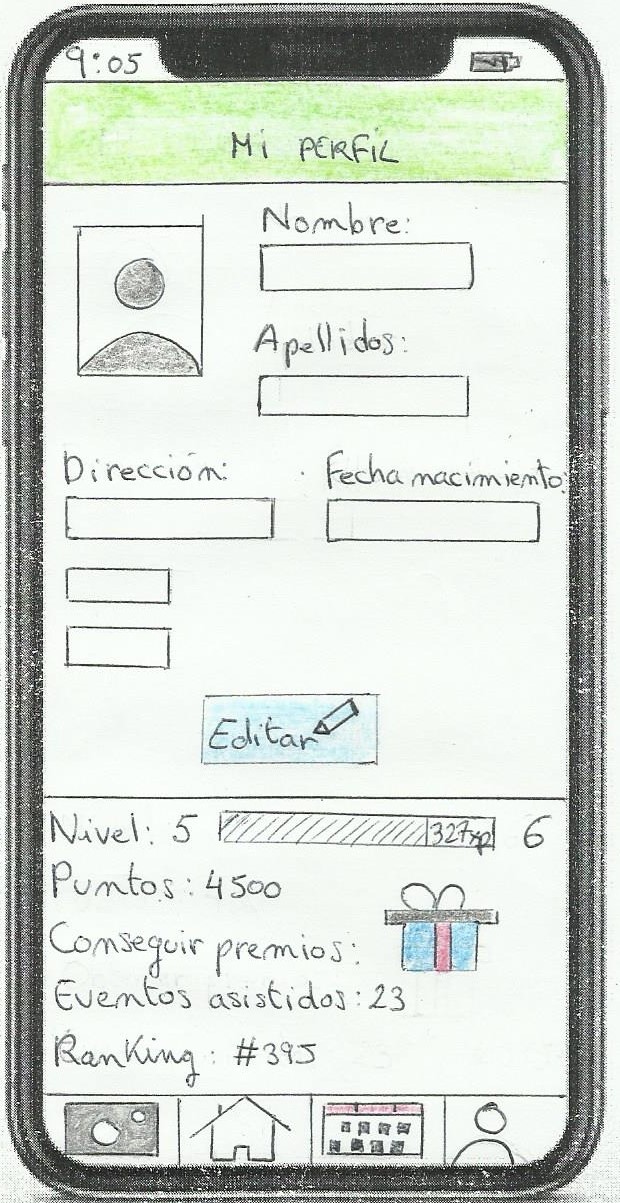 9:05
Mi PERFiL
Nombre:
Apellidos:
Dirección:
Fecha nacimiento:
Editar
Nivel: 5 327xp 6
Puntos: 4500
Conseguir premios:
Eventos asistidos: 23
Ranking: #395